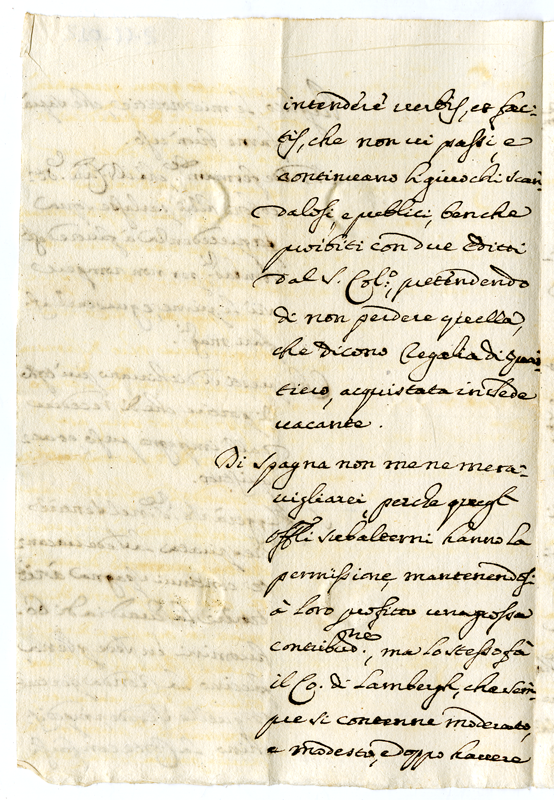 intendere verbis, et fac-
tis, che non vi passi, e
continuano li giuochi scan-
dalosi, e publici, benche
proibiti con due Editti
dal S. Col.o, pretendendo
di non perdere quella,
che dicono Regalia di Quar-
tiero, acquistata in Sede
vacante.
Di Spagna non me ne mera-
vigliarei, perche quegl'
Offli subalterni hanno la
permissione, mantenendosi
à loro profitto una grossa
contribud.ne, ma lo stesso fà
il Co. di Lambergh, che sem-
pre si contenne moderato,
e modesto, e doppo havere